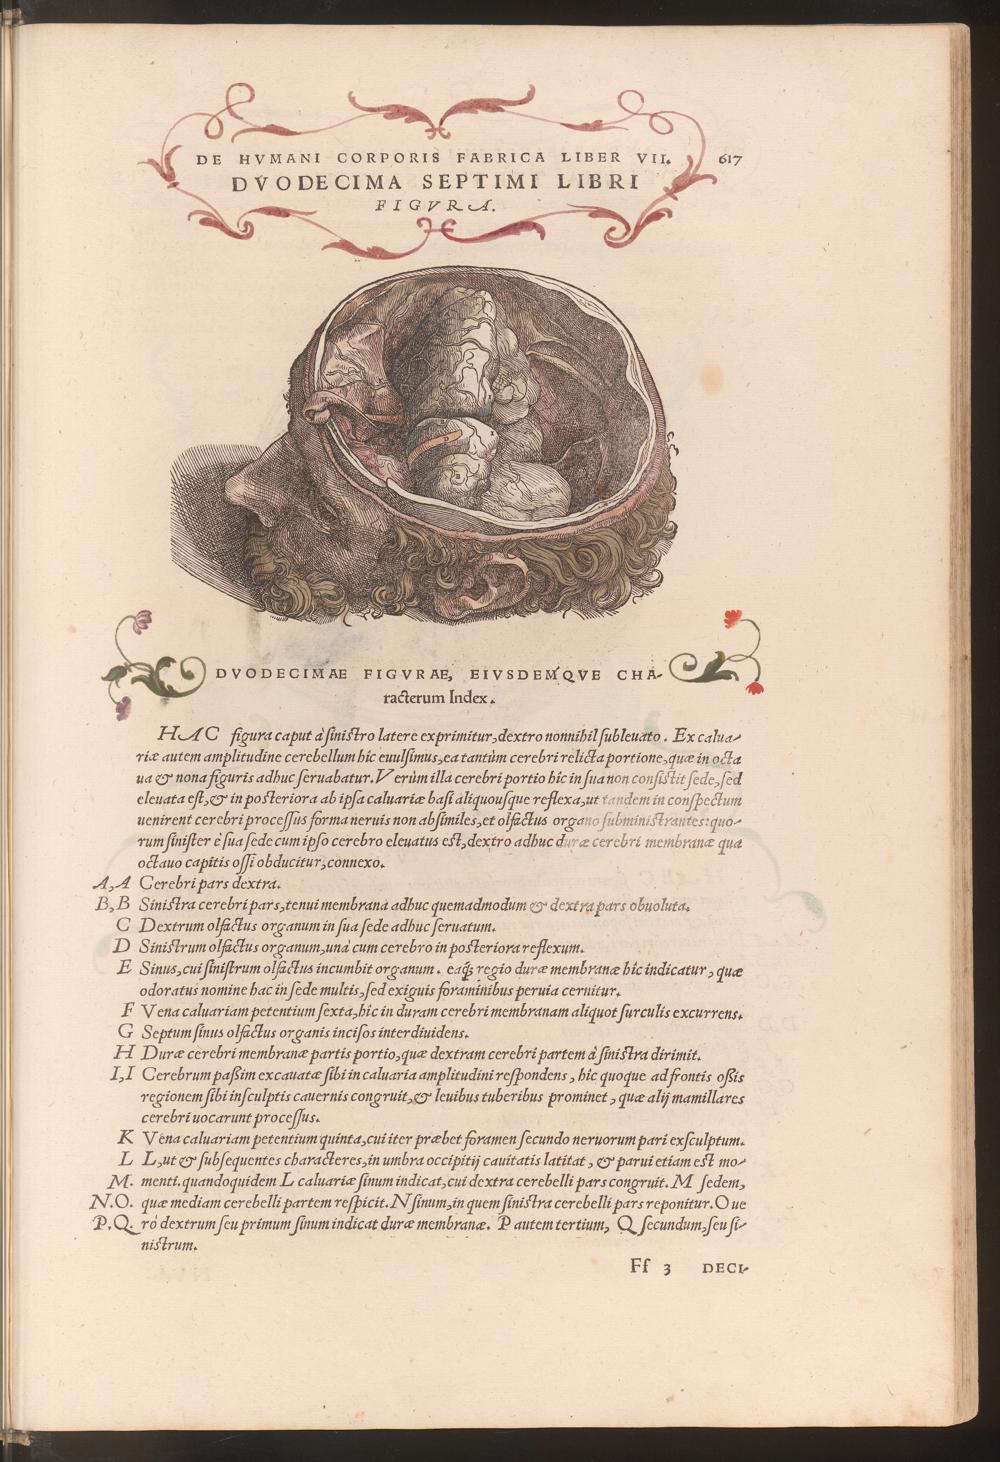 DE HVMANI CORPORIS FABRICA LIBER VII. 617
DVODECIMA SEPTIMI LIBRI
FIGVRA.
DVODECIMAE FIGVRAE, EIVSDEMQVE CHA-
racterum Index.
HAC figura caput à sinistro latere exprimitur, dextro nonnihil subleuato. Ex calua-
riæ autem amplitudine cerebellum hîc euulsimus, ea tantùm cerebri relicta portione, quæ in octa
ua & nona figuris adhuc seruabatur. Verùm illa cerebri portio hîc in sua non consistit sede, sed
eleuata est, & in posteriora ab ipsa caluariæ basi aliquousque reflexa, ut tandem in conspectum
uenirent cerebri processus forma neruis non absimiles, et olfactus organo subministrantes: quo-
rum sinister è sua sede cum ipso cerebro eleuatus est, dextro adhuc duræ cerebri membranæ qua
octauo capitis ossi obducitur, connexo.
A,A Cerebri pars dextra.
B,B Sinistra cerebri pars, tenui membrana adhuc quemadmodum & dextra pars obuoluta.
C Dextrum olfactus organum in sua sede adhuc seruatum.
D Sinistrum olfactus organum, unà cum cerebro in posteriora reflexum.
E Sinus, cui sinistrum olfactus incumbit organum. eaq́; regio duræ membranæ hîc indicatur, quæ
odoratus nomine hac in sede multis, sed exiguis foraminibus peruia cernitur.
F Vena caluariam petentium sexta, hîc in duram cerebri membranam aliquot surculis excurrens.
G Septum sinus olfactus organis incisos interdiuidens.
H Duræ cerebri membranæ partis portio, quæ dextram cerebri partem à sinistra dirimit.
I,I Cerebrum paßim excauatæ sibi in caluaria amplitudini respondens, hîc quoque ad frontis oßis
regionem sibi insculptis cauernis congruit, & leuibus tuberibus prominet, quæ alij mamillares
cerebri uocarunt processus.
K Vena caluariam petentium quinta, cui iter præbet foramen secundo neruorum pari exsculptum.
L L, ut & subsequentes characteres, in umbra occipitij cauitatis latitat, & parui etiam est mo-
M. menti. quandoquidem L caluariæ sinum indicat, cui dextra cerebelli pars congruit. M sedem,
N.O. quæ mediam cerebelli partem respicit. N sinum, in quem sinistra cerebelli pars reponitur. O ue
P.Q. rò dextrum seu primum sinum indicat duræ membranæ. P autem tertium, Q secundum, seu si-
nistrum.
Ff 3 DECI-